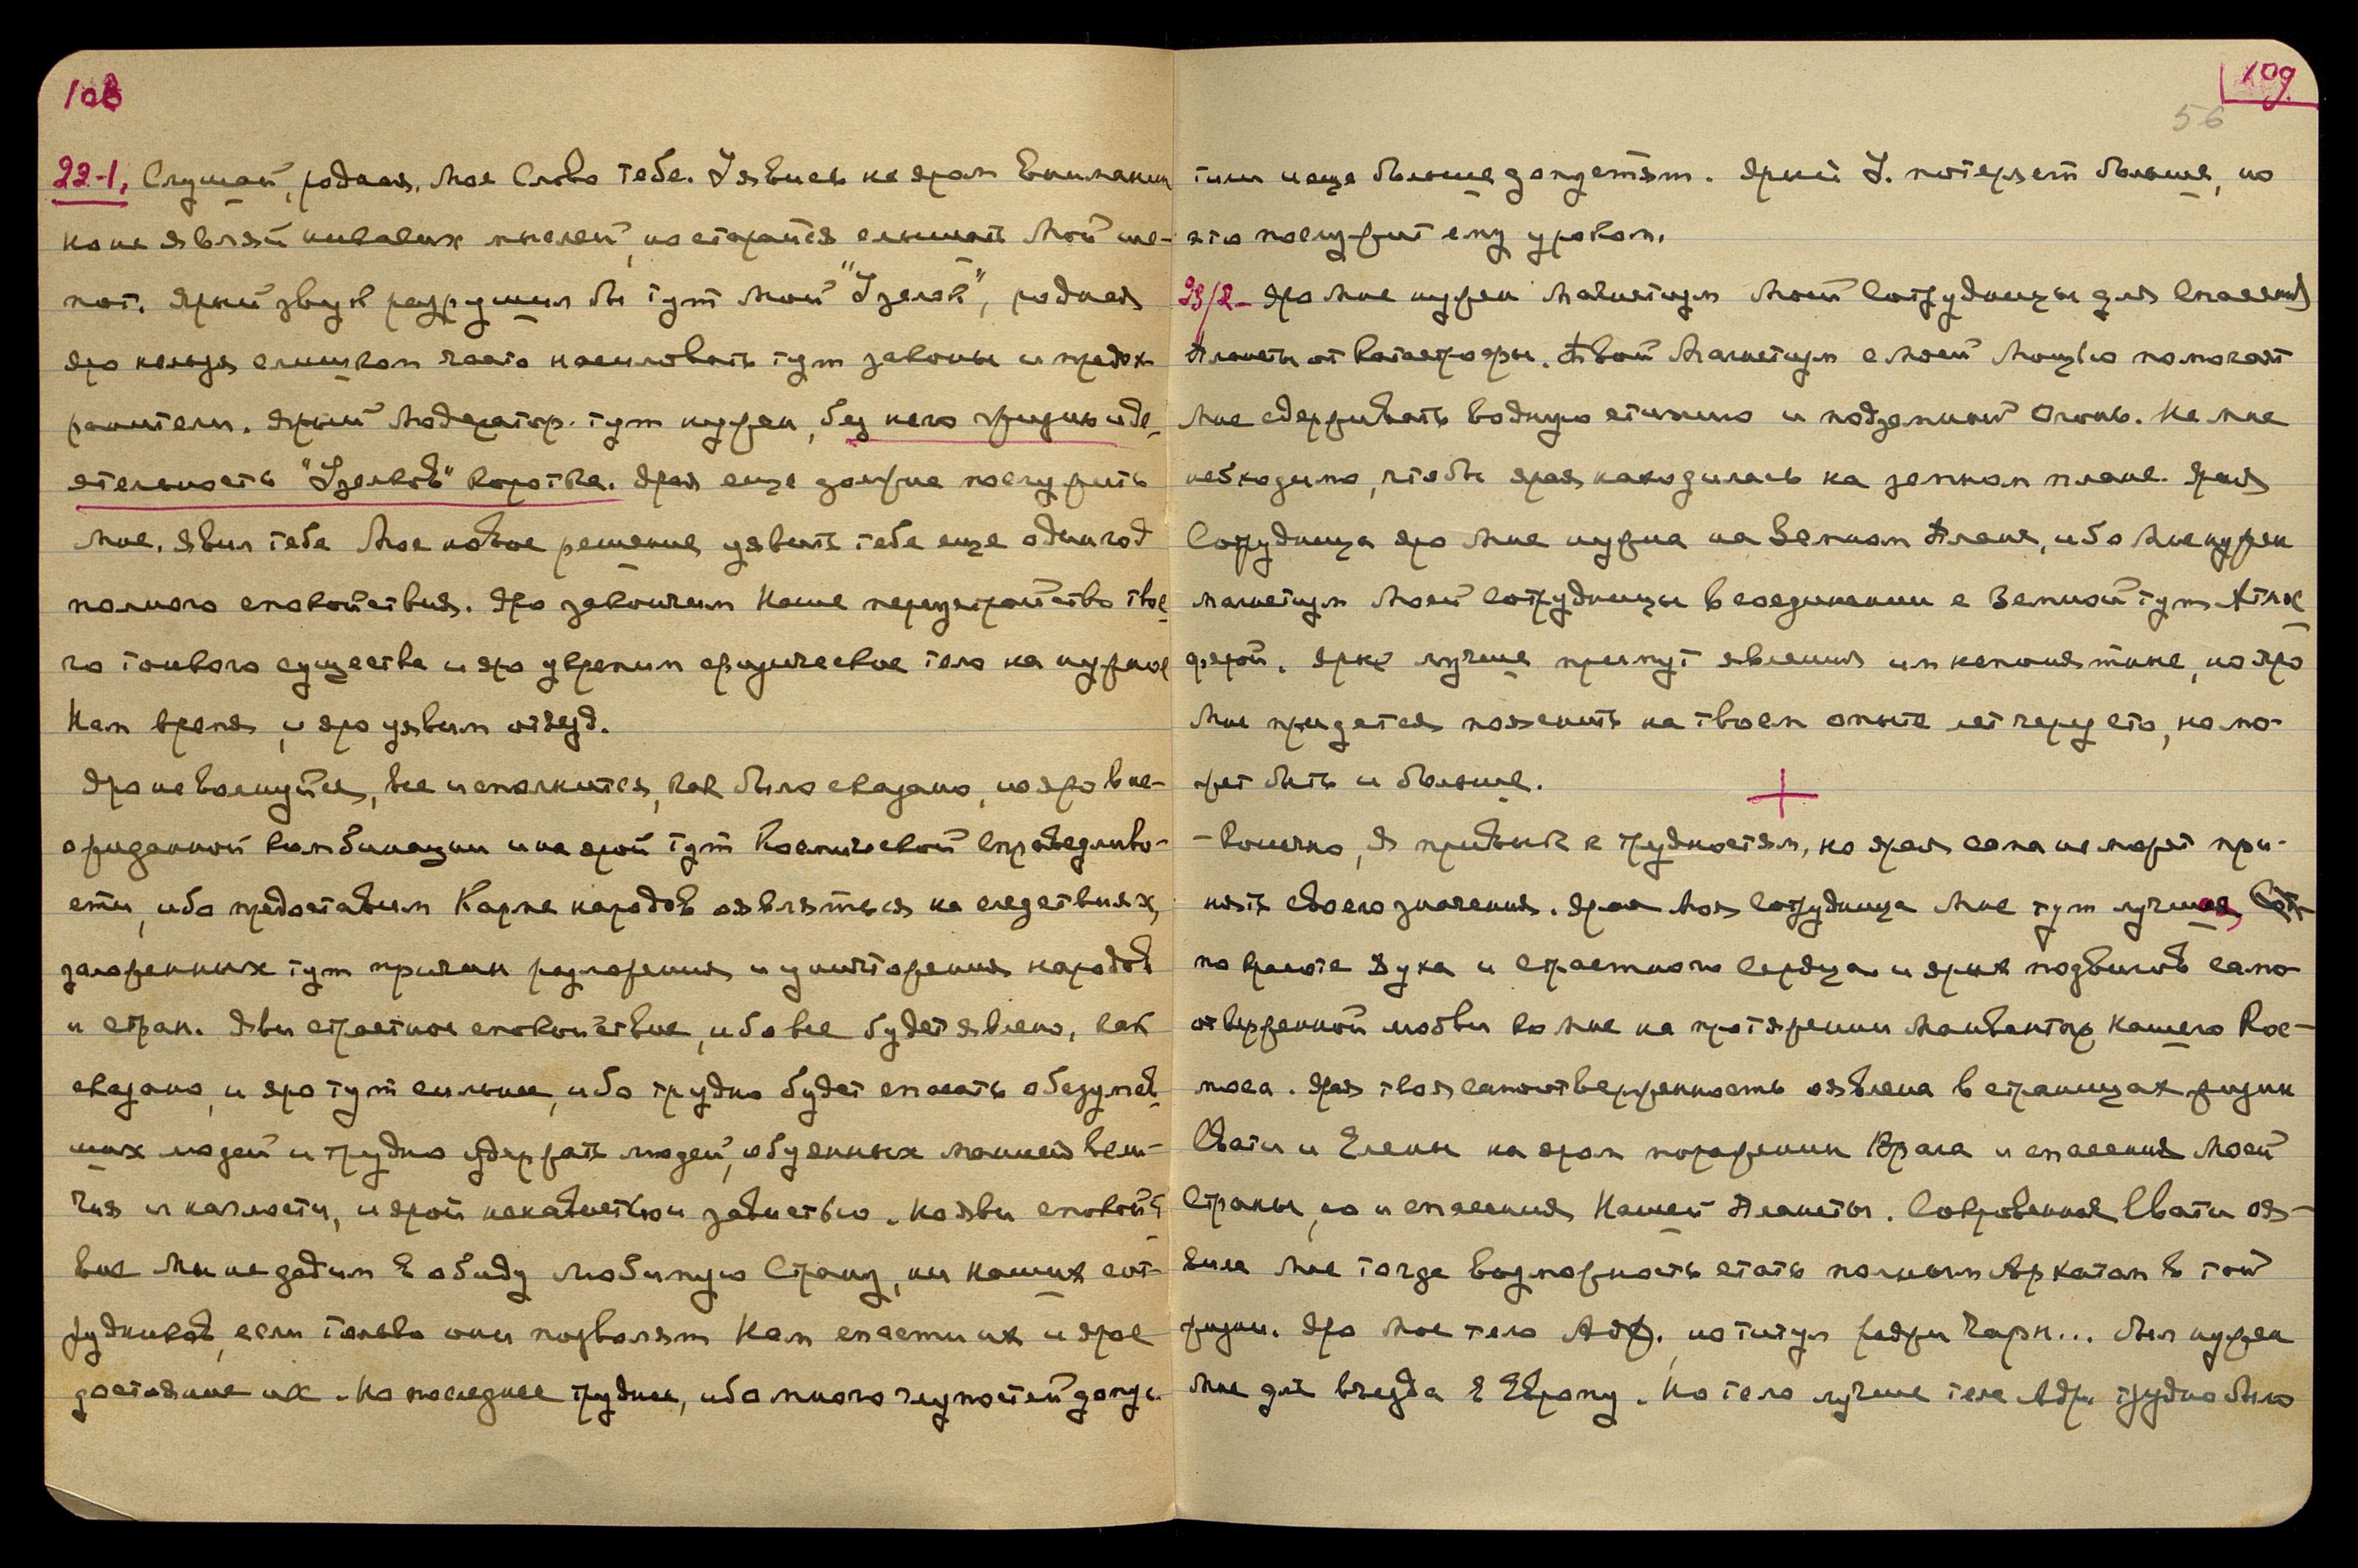 108
22-1, Слушай, родная, Мое Слово тебе. Уявись на яром Внимании
но не являй никаких мыслей, но старайся слышать Мой ше-
пот. Ярый звук разрушил бы тут Мой "Узелок", родная
яро нельзя слишком часто насиловать тут законы и предох
ранители. Ярый Модератор тут нужен, без него жизнь и де-
ятельность "Узелков" коротка. Ярая еще должна послужить
Мне. Явил тебе Мое новое решение уявить тебе еще один год
полного спокойствия. Яро закончим Наше переустройство твое-
го тонкого существа и яро укрепим физическое тело на нужное
Нам время, и яро уявим отъезд.
Яро не волнуйся, все исполнится, как было сказано, но яро в не-
ожиданной комбинации и на ярой тут Космической Справедливо-
сти, ибо предоставим Карме народов оявляться на следствиях,
заложенных тут причин разложения и уничтожения народов
и стран. Яви страстное спокойствие, ибо все будет явлено, как
сказано, и яро тут сильнее, ибо трудно будет спасать обезумев-
ших людей и трудно удержать людей, обуянных манией вели-
чия и наглости, и ярой ненавистью и завистью. Но яви спокойст-
вие Мы не дадим в обиду любимую Страну, ни наших сот-
рудников, если только они позволят Нам спасти их и ярое
достояние их. Но последнее труднее, ибо много глупостей допус-
109
56
тили и еще больше допустят. Ярый У. потеряет больше, но
это послужит ему уроком.
23/2- Яро Мне нужен Магнетизм Моей Сотрудницы для Спасения
Планеты от катастрофы. Твой Магнетизм с моей Мощью помогает
Мне сдерживать водную стихию и подземный Огонь. Но мне
необходимо, чтобы ярая находилась на земном плане. Ярая
Сотрудница яро Мне нужна на Земном Плане, ибо Мне нужен
магнетизм Моей сотрудницы в соединении с Земной тут Атмос
ферой. Ярые лучше примут явления им непонятные, но яро
Мне придется пояснить на твоем опыте лет через сто, но мо-
жет быть и больше.
- Конечно, Я привык к трудностям, но ярая сама не может при-
нять своего значения. Ярая Моя Сотрудница Мне тут лучшая,
по красоте Духа и Страстного Сердца и ярых подвигов само-
отверженной любви ко Мне на протяжении Манвантар нашего Кос-
моса. Ярая твоя самоотверженность оявлена в страницах жизни
Свати и Елены на яром поражении Врага и спасения Моей
Страны, но и спасения Нашей Планеты. Сокровенная Свати оя-
вила Мне тогда возможность стать полным Архатом в той
жизни. Яро Мое тело Адж., но титул Раджи Чарн... был нужен
Мне для въезда в Европу. Но тело лучше тела Адж. трудно было